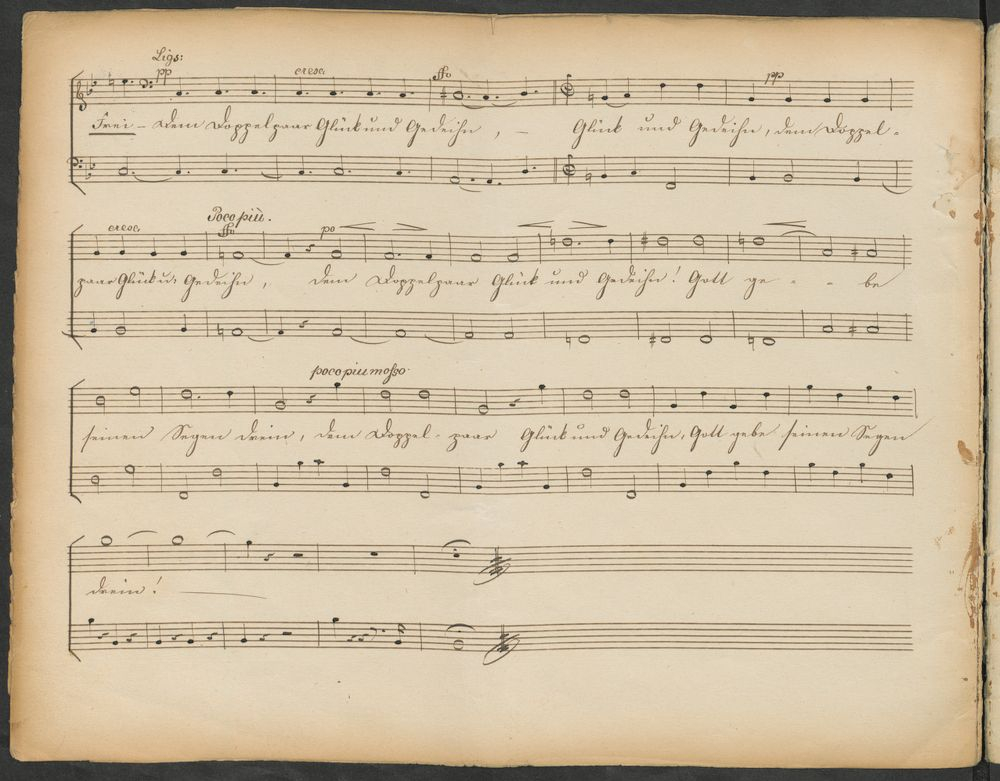 Ligs:
pp cresc. ffo pp
Frei – Dem Doppelpaar Glück und Gedeihn, – Glück und Gedeihn, dem Doppel-
cresc. Poco più. ffo po
paar Glück u: Gedeihn, dem Doppelpaar Glück und Gedeihn! Gott ge - - be
poco piu mosso
seinen Segen drein, dem Doppel-paar Glück und Gedeihn, Gott gebe seinen Segen
drein!